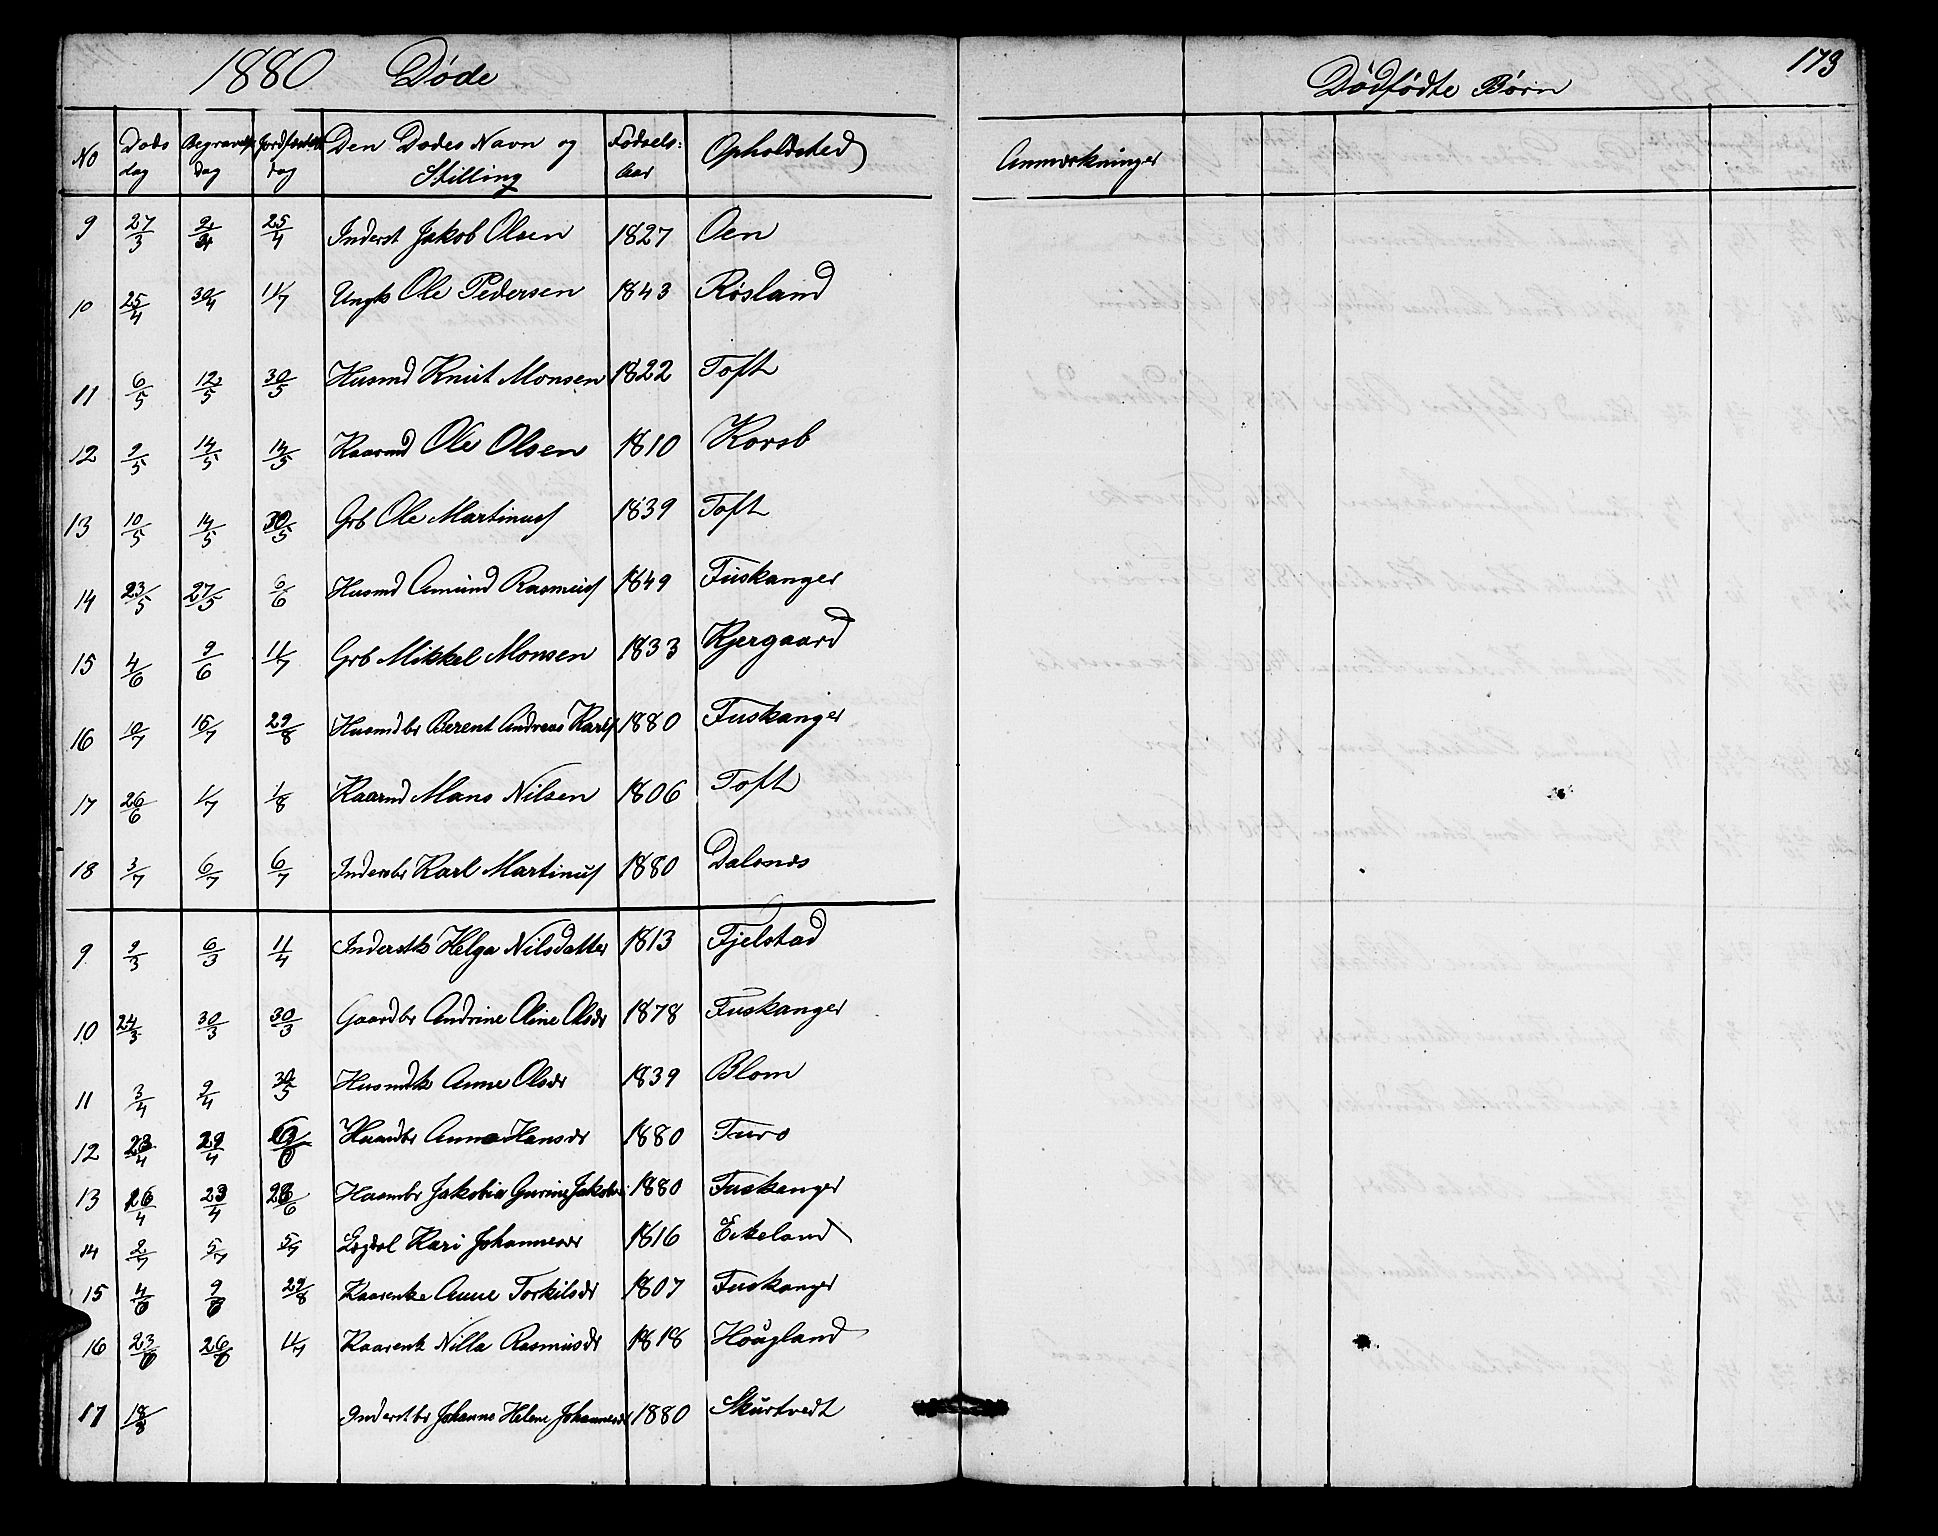 1880 Døde
Dødfødte Børn
173
No Døds dag Begravels dag Jordfæstels dag Den Dødes Navn og Stilling Fødsels: Aar Opholdsted Anmærkninger
9 27/3 2/4 25/4 Inderst Jakob Olsen 1827 Oen
10 25/4 30/4 11/7 Ungk Ole Pedersen 1843 Røsland
11 6/5 12/5 30/5 Husmd Knut Monsen 1822 Toft
12 9/5 14/5 14/5 Kaarmd Ole Olsen 1810 Korsb
13 10/5 14/5 30/5 Grb Ole Martinus 1839 Toft
14 23/5 27/5 6/6 Husmd Amund Rasmus 1849 Fuskanger
15 4/6 9/6 11/7 Grb Mikkel Monsen 1833 Kjergaard
16 10/7 15/7 29/8 Husmdbr Berent Andreas Karls 1880 Fuskanger
17 26/6 1/7 1/8 Kaarmd Mans Nilsen 1806 Toft
18 3/7 6/7 6/7 Inderstbr Karl Martinus 1880 Dalsnæs
9 2/3 6/3 11/4 Inderstk Helga Nilsdatter 1813 Fjelstad
10 24/3 30/3 30/3 Gaardbr Andrine Oline Olsdr 1878 Fuskanger
11 3/4 9/4 30/5 Husmdk Anne Olsdr 1839 Blom
12 23/4 29/4 Husmdbr Anna Hansdr 1880 Turø
13 26/4 29/4 28/6 Husmbr Jakobia Gurine Jakobs: 1880 Fuskanger
14 2/7 5/7 5/7 Lægdsl Kari Johannesdr 1816 Eikeland
15 4/6 9/6 29/8 Kaarenke Anne Torkilsdr 1807 Fuskanger
16 23/6 26/6 11/7 Kaarenk Nilla Rasmusdr 1818 Hougland
17 18/8 Inderstbr Johanna Helene Johannesdr 1880 Skurtvedt